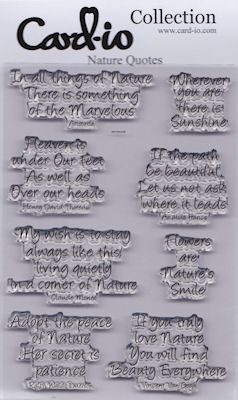 Card-io Collection
www.card-io.com
Nature Quotes
In all things of Nature
There is something
of the Marvelous
Aristotle
Wherever
you are
there is
Sunshine
Heaven is
under Our feet
As well as
Over our heads
Henry David Thoreau
If the path
be beautiful,
Let us not ask
where it leads
Anatole France
My wish is to stay
always like this
living quietly
In a corner of Nature
Claude Monet
Flowers
are
Nature's
Smile
Adopt the peace
of Nature
Her secret is
patience
If you truly
love Nature
You will find
Beauty Everywhere
Vincent Van Gogh